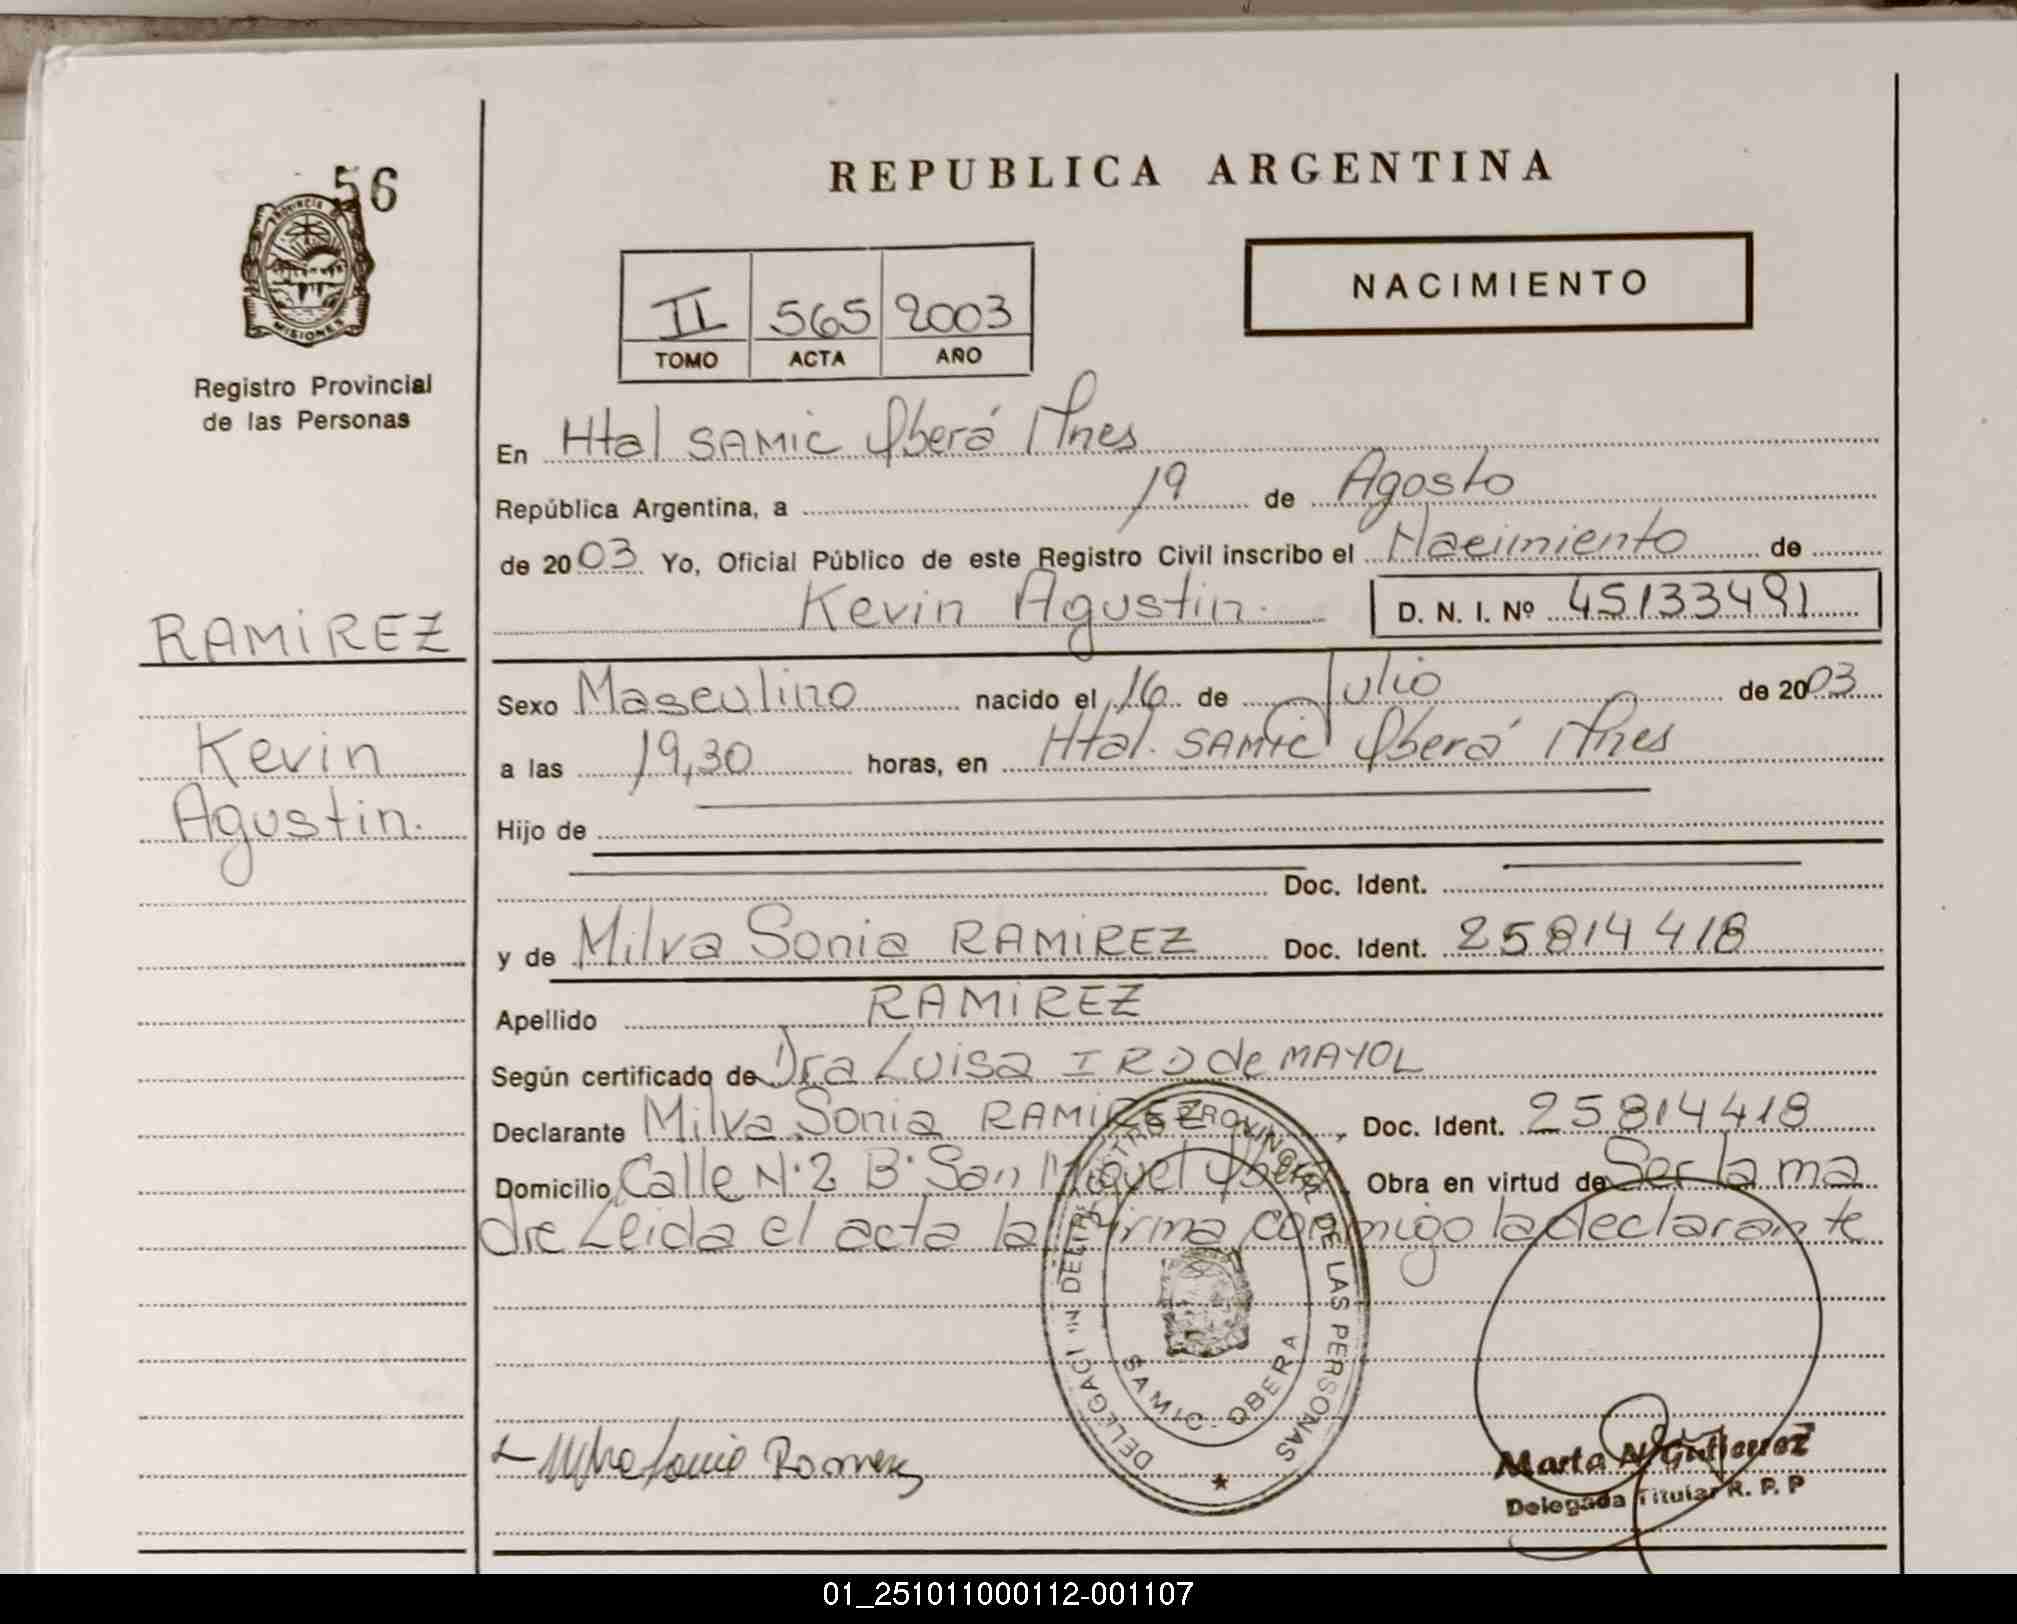 56
PROVINCIA DE
MISIONES
Registro Provincial
de las Personas
RAMIREZ
Kevin
Agustin.
REPUBLICA ARGENTINA
II 565 2003
TOMO ACTA AÑO
NACIMIENTO
En Htal SAMIC Oberá Mnes
República Argentina, a 19 de Agosto
de 2003 Yo, Oficial Público de este Registro Civil inscribo el Nacimiento de
Kevin Agustin. D. N. I. Nº 45133491
Sexo Masculino nacido el 16 de Julio de 2003
a las 19,30 horas, en Htal. SAMIC Oberá Mnes
Hijo de
Doc. Ident.
y de Milva Sonia RAMIREZ Doc. Ident. 25814418
Apellido RAMIREZ
Según certificado de Dra Luisa IRO de MAYOL
Declarante Milva Sonia RAMIREZ, Doc. Ident. 25814418
Domicilio Calle N·2 B· San Miguel Oberá, Obra en virtud de Ser la ma
dre Leida el acta la firma conmigo la declarante
REGISTRO PROVINCIAL DE LAS PERSONAS
SAMIC - OBERA
Marta N. Gutierrez
Delegada Titular R. P. P
01_251011000112-001107